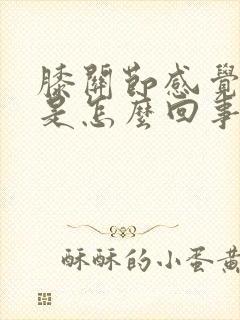 膝關節感覺
是怎麼回事
酥酥的小蛋黃